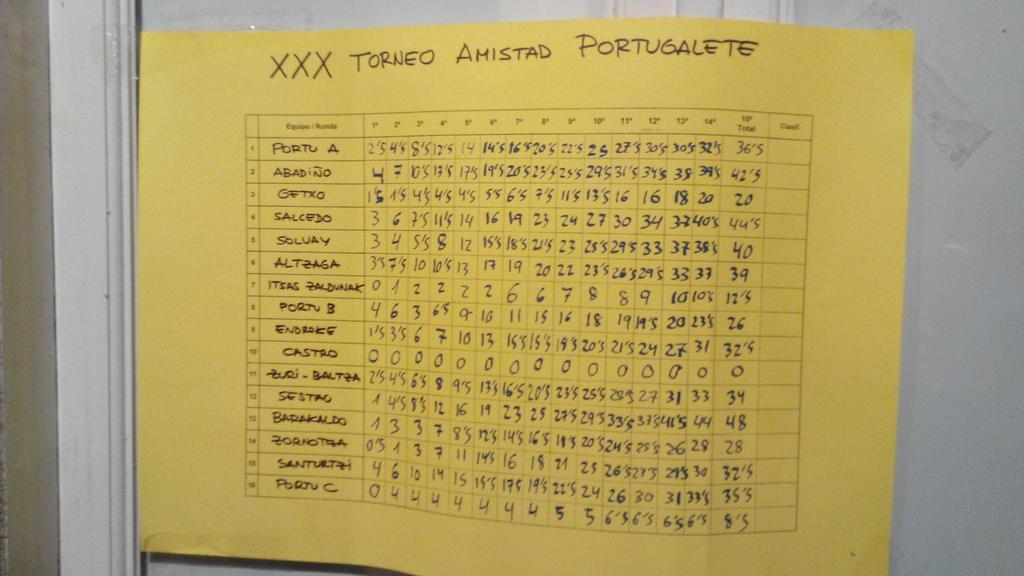 XXX TORNEO AMISTAD PORTUGALETE
Equipo / Ronda 1ª 2ª 3ª 4ª 5ª 6ª 7ª 8ª 9ª 10ª 11ª 12ª 13ª 14ª 15ª Total Clasif.
1 PORTU A 2'5 4'5 8'5 12'5 14 14'5 16'5 20'5 22'5 25 27'5 30'5 30'5 32'5 36'5
2 ABADIÑO 4 7 10'5 13'5 17'5 19'5 20'5 23'5 25'5 29'5 31'5 34'5 38 39'5 42'5
3 GETXO 1'5 1'5 4'5 4'5 4'5 5'5 6'5 7'5 11'5 13'5 16 16 18 20 20
4 SALCEDO 3 6 7'5 11'5 14 16 19 23 24 27 30 34 37 40'5 44'5
5 SOLUAY 3 4 5'5 8 12 15'5 18'5 21'5 23 25'5 29'5 33 37 38'5 40
6 ALTZAGA 3'5 7'5 10 10'5 13 17 19 20 22 23'5 26'5 29'5 33 37 39
7 ITSAS ZALDUNAK 0 1 2 2 2 2 6 6 7 8 8 9 10 10'5 12'5
8 PORTU B 4 6 3 6'5 9 10 11 15 16 18 19 19'5 20 23'5 26
9 ENDROKE 1'5 3'5 6 7 10 13 15'5 15'5 18'5 20'5 21'5 24 27 31 32'5
10 CASTRO 0 0 0 0 0 0 0 0 0 0 0 0 0 0 0
11 ZURI-BALTZA 2'5 4'5 6'5 8 9'5 13'5 16'5 20'5 23'5 25'5 27 31 33 34
12 SESTAO 1 4'5 8'5 12 16 19 23 25 27'5 29'5 33'5 37'5 41'5 44 48
13 BARAKALDO 1 3 3 7 8'5 12'5 14'5 16'5 18'5 20'5 24'5 25'5 26 28 28
14 ZORNOTZA 0'5 1 3 7 11 14'5 16 18 21 25 26'5 27'5 29'5 30 32'5
15 SANTURTZI 4 6 10 14 15 15'5 17'5 19'5 22'5 24 26 30 31 33'5 35'5
16 PORTU C 0 4 4 4 4 4 4 4 5 5 6'5 6'5 6'5 6'5 8'5